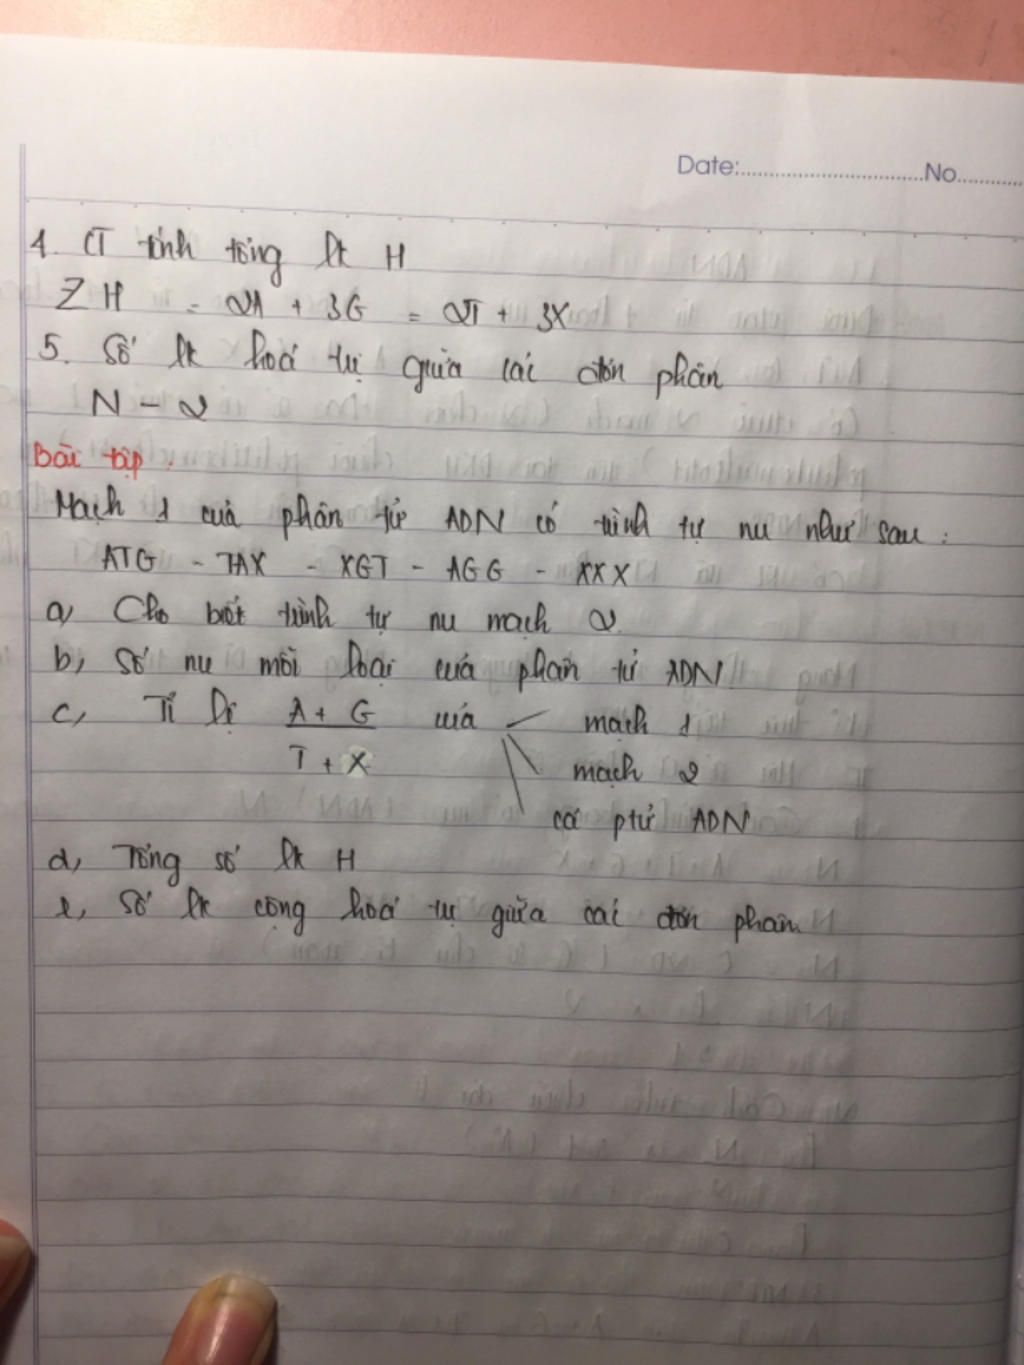 Date:..............................No............
4. CT tính tổng lk H
ΣH = 2A + 3G = 2T + 3X
5. Số lk hoá trị giữa các đơn phân
N - 2
Bài tập:
Mạch 1 của phân tử ADN có trình tự nu như sau:
ATG - TAX - XGT - AGG - XXX
a, Cho biết trình tự nu mạch 2
b, Số nu mỗi loại của phân tử ADN
c, Tỉ lệ A + G của mạch 1
T + X mạch 2
cả ptử ADN
d, Tổng số lk H
e, Số lk cộng hoá trị giữa các đơn phân